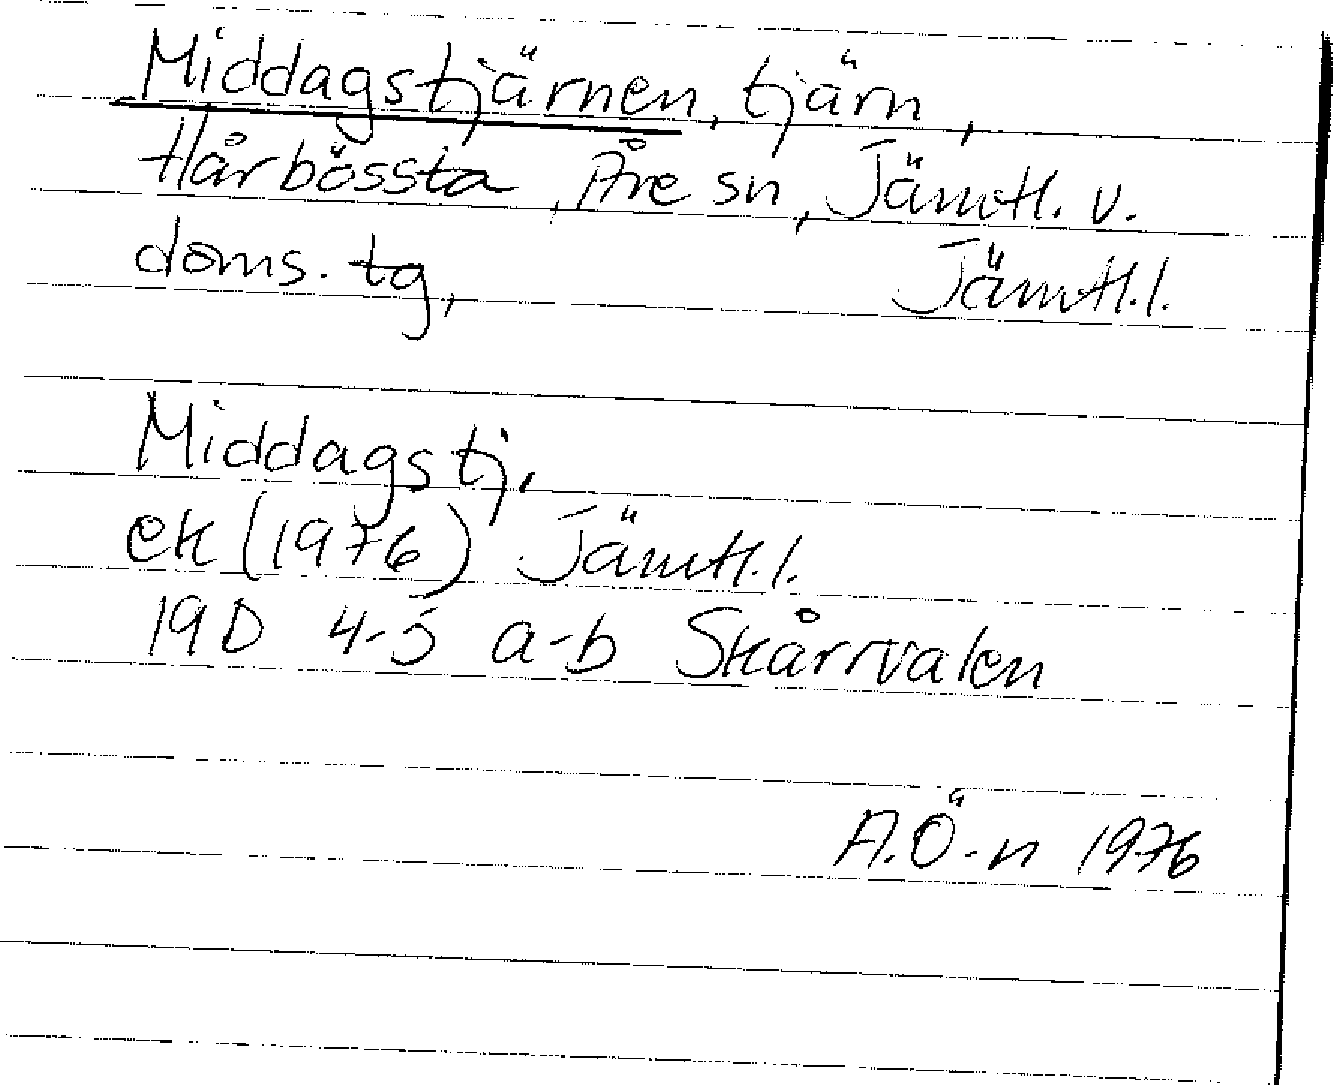 Middagstjärnen, tjärn,
Hårbössta, Åre sn, Jämtl. v.
doms. tg, Jämtl.l.
Middagstj.
ek (1976) Jämtl.l.
19D 4-5 a-b Skårrvalen
A.Ö-n 1976